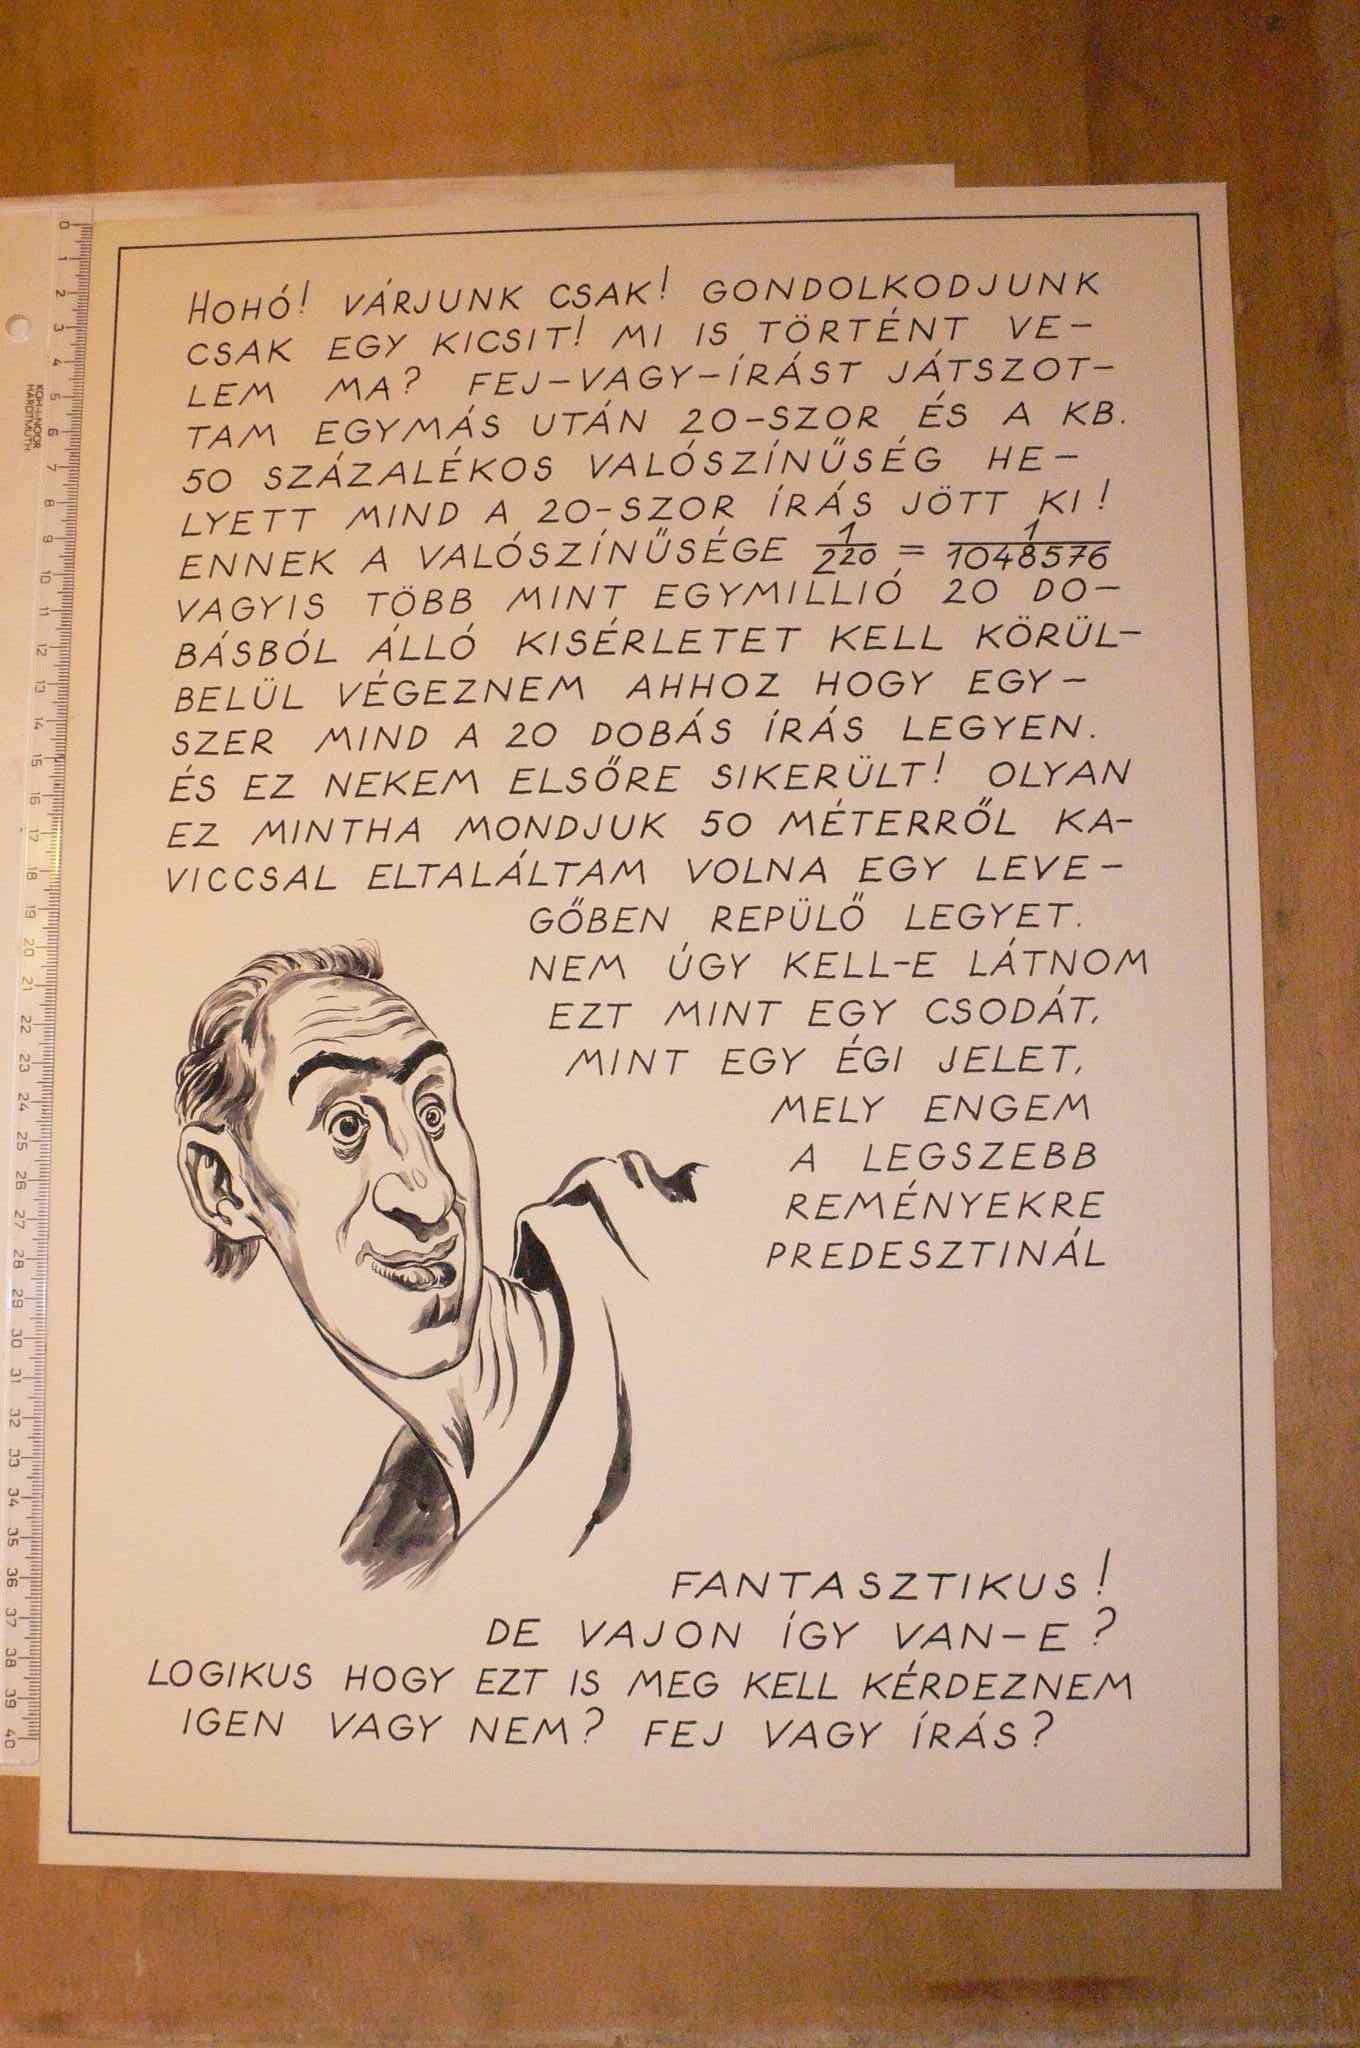 HOHÓ! VÁRJUNK CSAK! GONDOLKODJUNK
CSAK EGY KICSIT! MI IS TÖRTÉNT VE-
LEM MA? FEJ-VAGY-ÍRÁST JÁTSZOT-
TAM EGYMÁS UTÁN 20-SZOR ÉS A KB.
50 SZÁZALÉKOS VALÓSZÍNŰSÉG HE-
LYETT MIND A 20-SZOR ÍRÁS JÖTT KI!
ENNEK A VALÓSZÍNŰSÉGE 1/2²⁰ = 1/1048576
VAGYIS TÖBB MINT EGYMILLIÓ 20 DO-
BÁSBÓL ÁLLÓ KISÉRLETET KELL KÖRÜL-
BELÜL VÉGEZNEM AHHOZ HOGY EGY-
SZER MIND A 20 DOBÁS ÍRÁS LEGYEN.
ÉS EZ NEKEM ELSŐRE SIKERÜLT! OLYAN
EZ MINTHA MONDJUK 50 MÉTERRŐL KA-
VICCSAL ELTALÁLTAM VOLNA EGY LEVE-
GŐBEN REPÜLŐ LEGYET.
NEM ÚGY KELL-E LÁTNOM
EZT MINT EGY CSODÁT,
MINT EGY ÉGI JELET,
MELY ENGEM
A LEGSZEBB
REMÉNYEKRE
PREDESZTINÁL
FANTASZTIKUS!
DE VAJON ÍGY VAN-E?
LOGIKUS HOGY EZT IS MEG KELL KÉRDEZNEM
IGEN VAGY NEM? FEJ VAGY ÍRÁS?
0
1
2
3
4
5
6
7
8
9
10
11
12
13
14
15
16
17
18
19
20
21
22
23
24
25
26
27
28
29
30
31
32
33
34
35
36
37
38
39
40
KOH-I-NOOR
HARDTMUTH